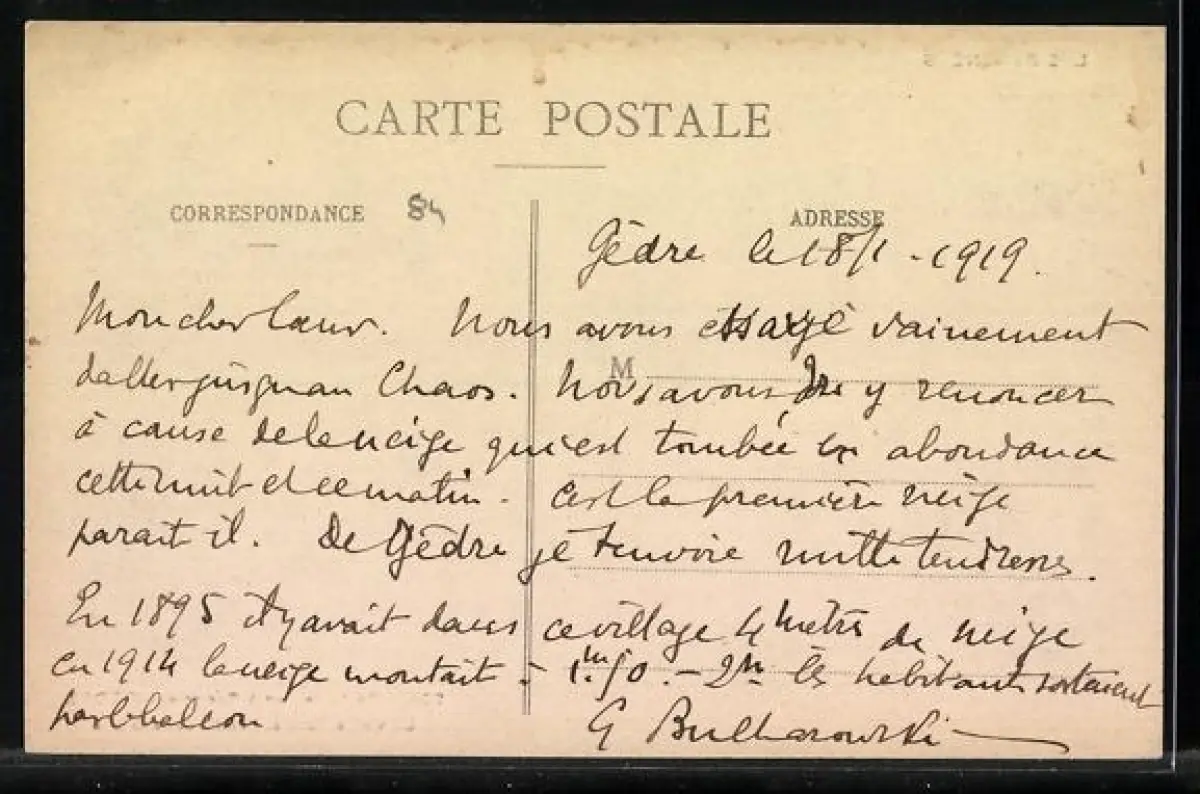 CARTE POSTALE
CORRESPONDANCE 84
ADRESSE
Gèdre le 18/1 - 1919.
Mon cher Cœur. Nous avons essayé vainement
d'aller jusqu'au Chaos. Nous avons dû y renoncer
M
à cause de la neige qui est tombée en abondance
cette nuit et ce matin. C'est la première neige
parait il. De Gèdre je t'envoie mille tendresses.
En 1895 il y avait dans ce village 4 mètres de neige
en 1914 la neige montait à 1m.50. - 2m. les habitants sortaient
par l balcon
G